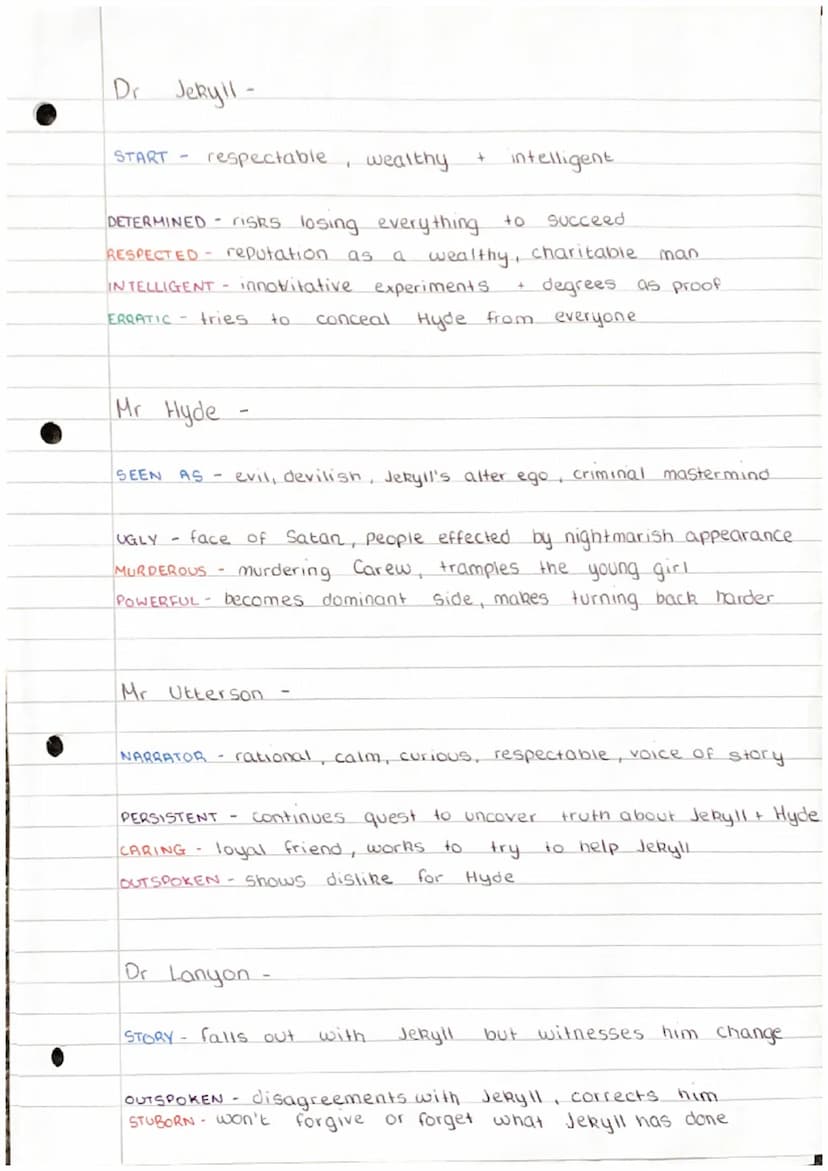 Dr Jekyll -
START - respectable, wealthy + intelligent
DETERMINED - risks losing everything to succeed
RESPECTED - reputation as a wealthy, charitable man
INTELLIGENT - innovitative experiments + degrees as proof
ERRATIC - tries to conceal Hyde from everyone
Mr Hyde -
SEEN AS - evil, devilish, Jekyll's alter ego, criminal mastermind
UGLY - face of Satan, people effected by nightmarish appearance
MURDEROUS - murdering Carew, tramples the young girl
POWERFUL - becomes dominant side, makes turning back harder
Mr Utterson -
NARRATOR - rational, calm, curious, respectable, voice of story
PERSISTENT - continues quest to uncover truth about Jekyll + Hyde
CARING - loyal friend, works to try to help Jekyll
OUTSPOKEN - shows dislike for Hyde
Dr Lanyon -
STORY - falls out with Jekyll but witnesses him change
OUTSPOKEN - disagreements with Jekyll, corrects him
STUBORN - won't forgive or forget what Jekyll has done